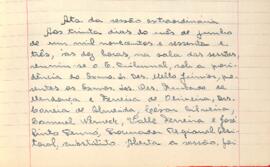 Ata da sessão extraordinária
Aos trinta dias do mês de junho
de um mil novecentos e sessenta e
três, às dez horas, na sala das sessões
reuniu-se o E. Tribunal, sob a presi-
dência do Exmo. Sr. Des. Mello Júnior, pre-
sentes os Exmos. Srs. Des. Furtado de
Mendonça e Ferreira de Oliveira, Drs.
Correia de Almeida, César Silveira,
Samuel Werneck, Valle Ferreira e José
Pinto Renó, Procurador Regional Elei-
toral, substituto. Aberta a sessão, foi